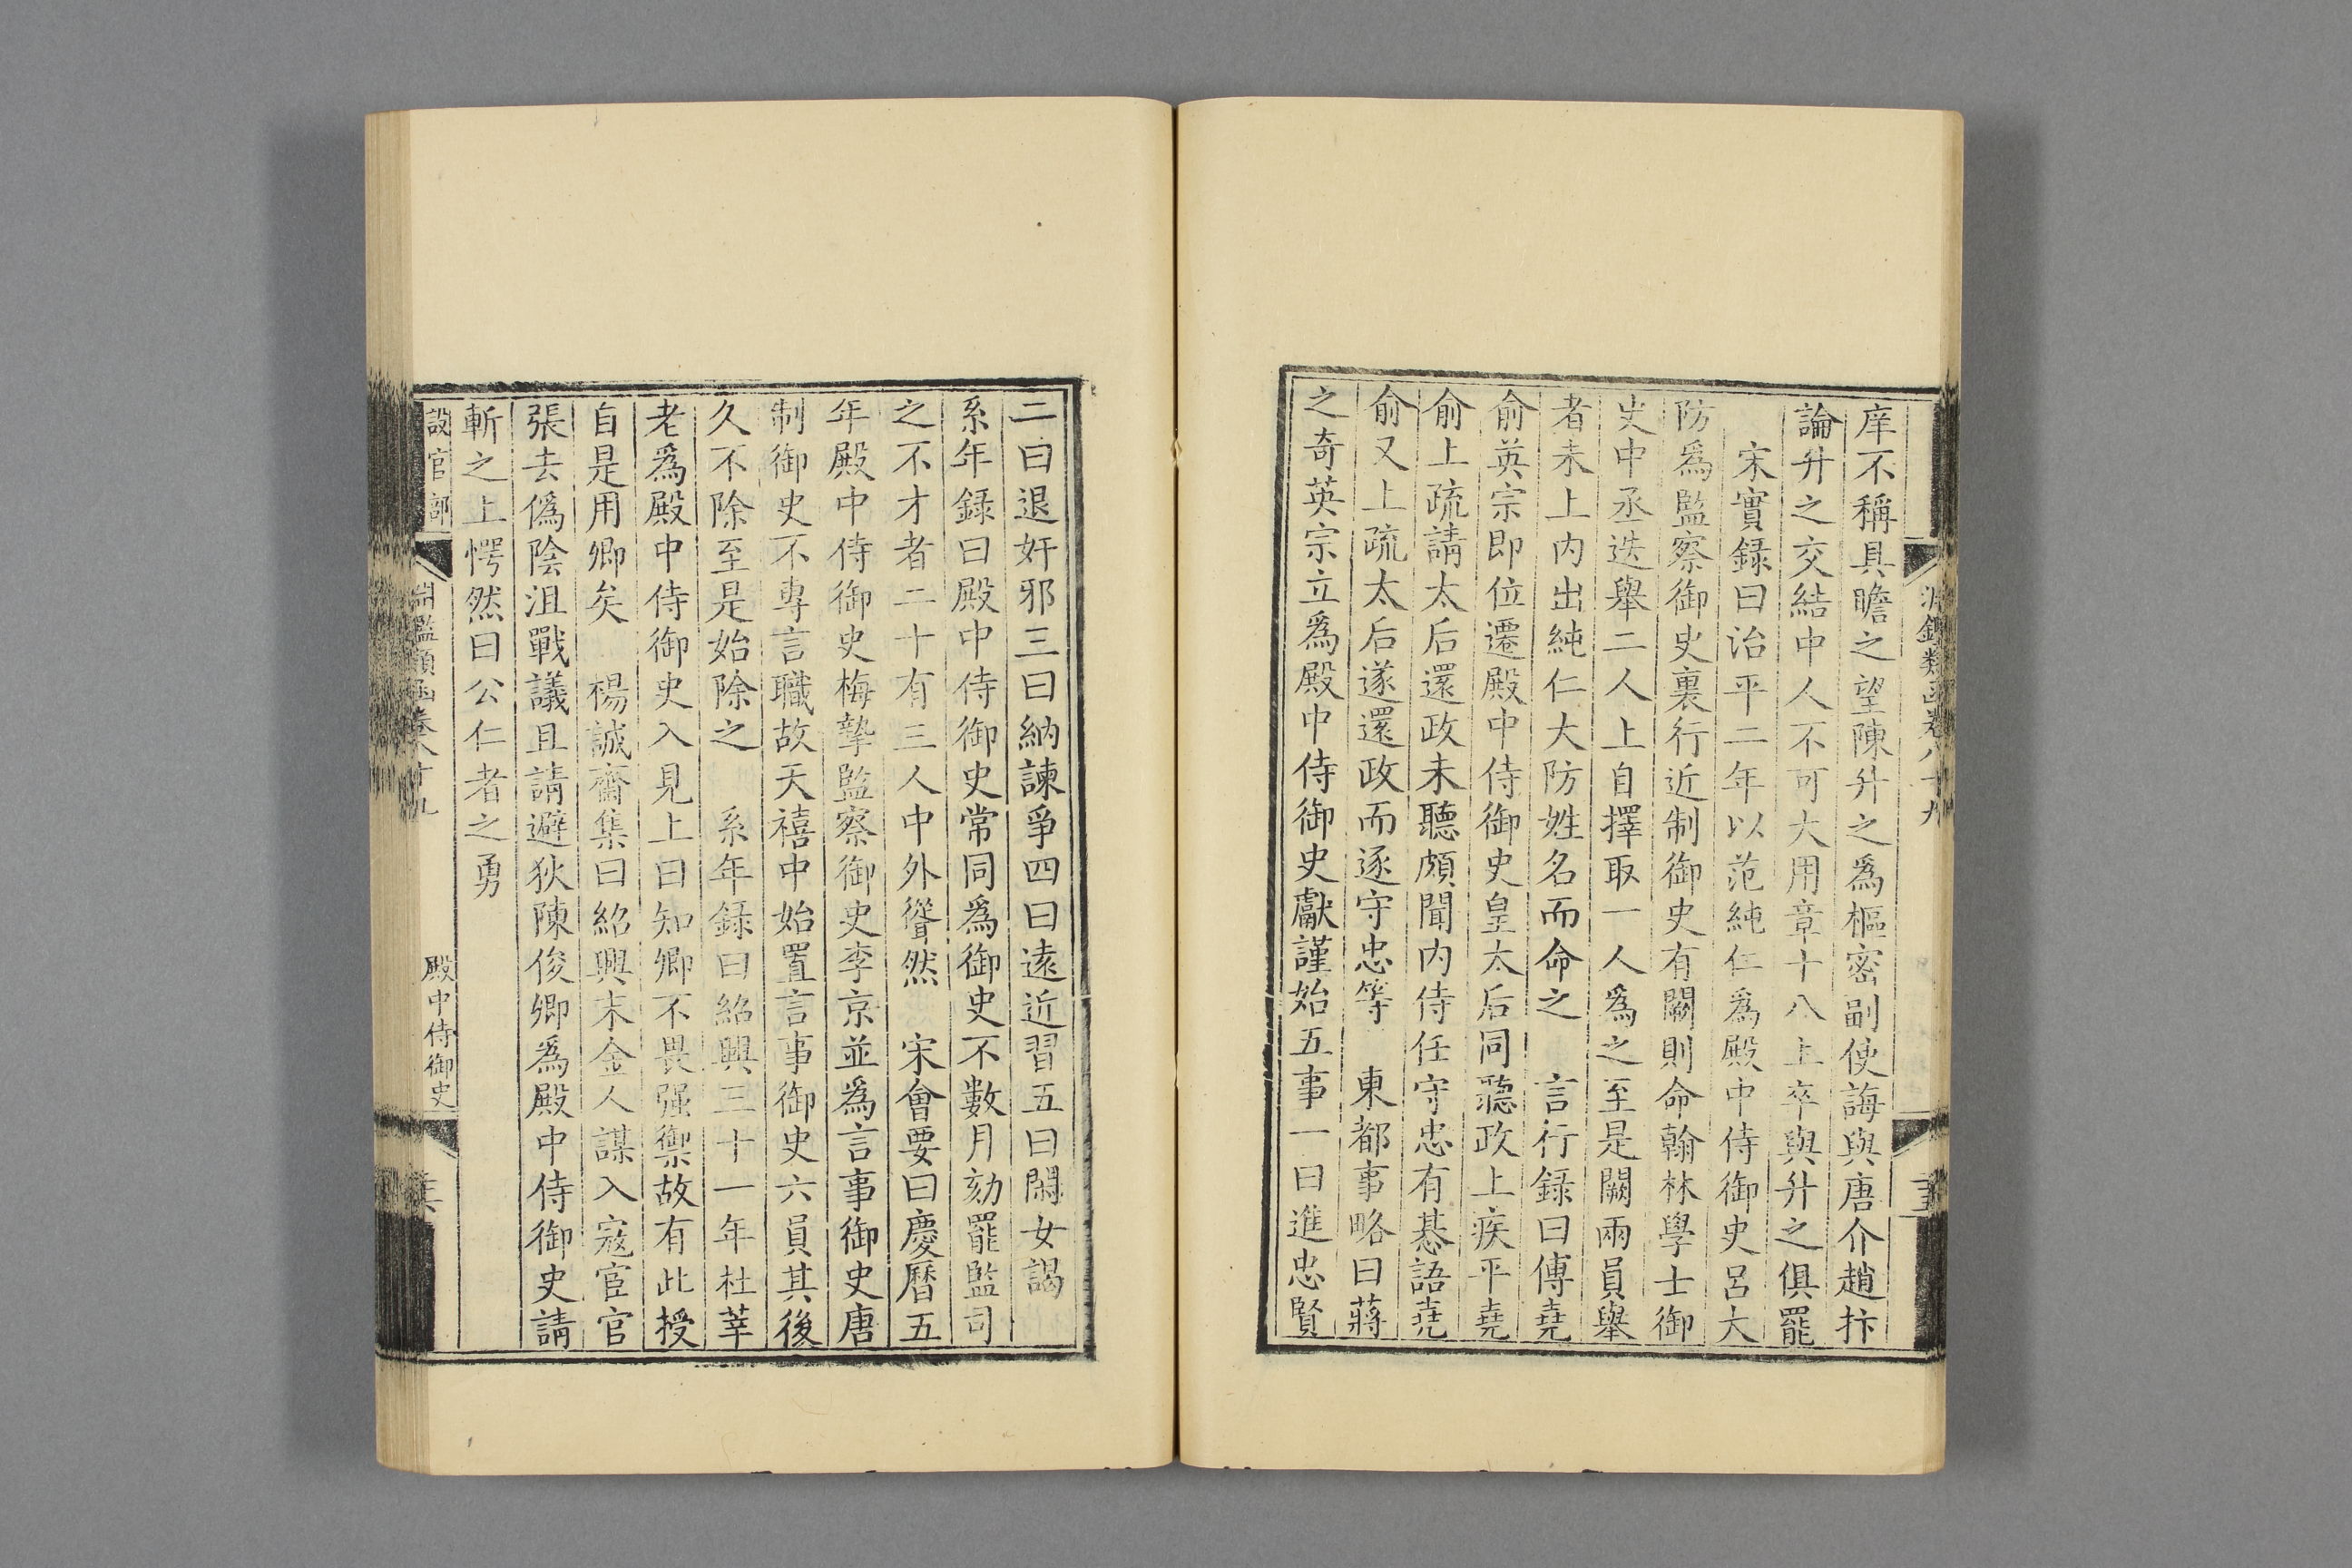 淵鑑類函卷八十九
庠不稱具瞻之望陳升之爲樞密副使誨與唐介趙抃
論升之交結中人不可大用章十八上卒與升之俱罷
宋實録曰治平二年以范純仁爲殿中侍御史呂大
防爲監察御史裏行近制御史有闕則命翰林學士御
史中丞迭舉二人上自擇取一人爲之至是闕兩員舉
者未上内出純仁大防姓名而命之　言行録曰傅堯
俞英宗即位遷殿中侍御史皇太后同聽政上疾平堯
俞上疏請太后還政未聽頗聞内侍任守忠有惎語堯
俞又上疏太后遂還政而逐守忠等　東都事略曰蔣
之奇英宗立爲殿中侍御史獻謹始五事一曰進忠賢
二曰退奸邪三曰納諫爭四曰遠近習五曰閑女謁
系年録曰殿中侍御史常同爲御史不數月劾罷監司
之不才者二十有三人中外聳然　宋會要曰慶曆五
年殿中侍御史梅摯監察御史李京並爲言事御史唐
制御史不專言職故天禧中始置言事御史六員其後
久不除至是始除之　系年録曰紹興三十一年杜莘
老爲殿中侍御史入見上曰知卿不畏强禦故有此授
自是用卿矣　楊誠齋集曰紹興末金人謀入寇宦官
張去僞陰沮戰議且請避狄陳俊卿爲殿中侍御史請
斬之上愕然曰公仁者之勇
設官部
淵鑑類函卷八十九
殿中侍御史